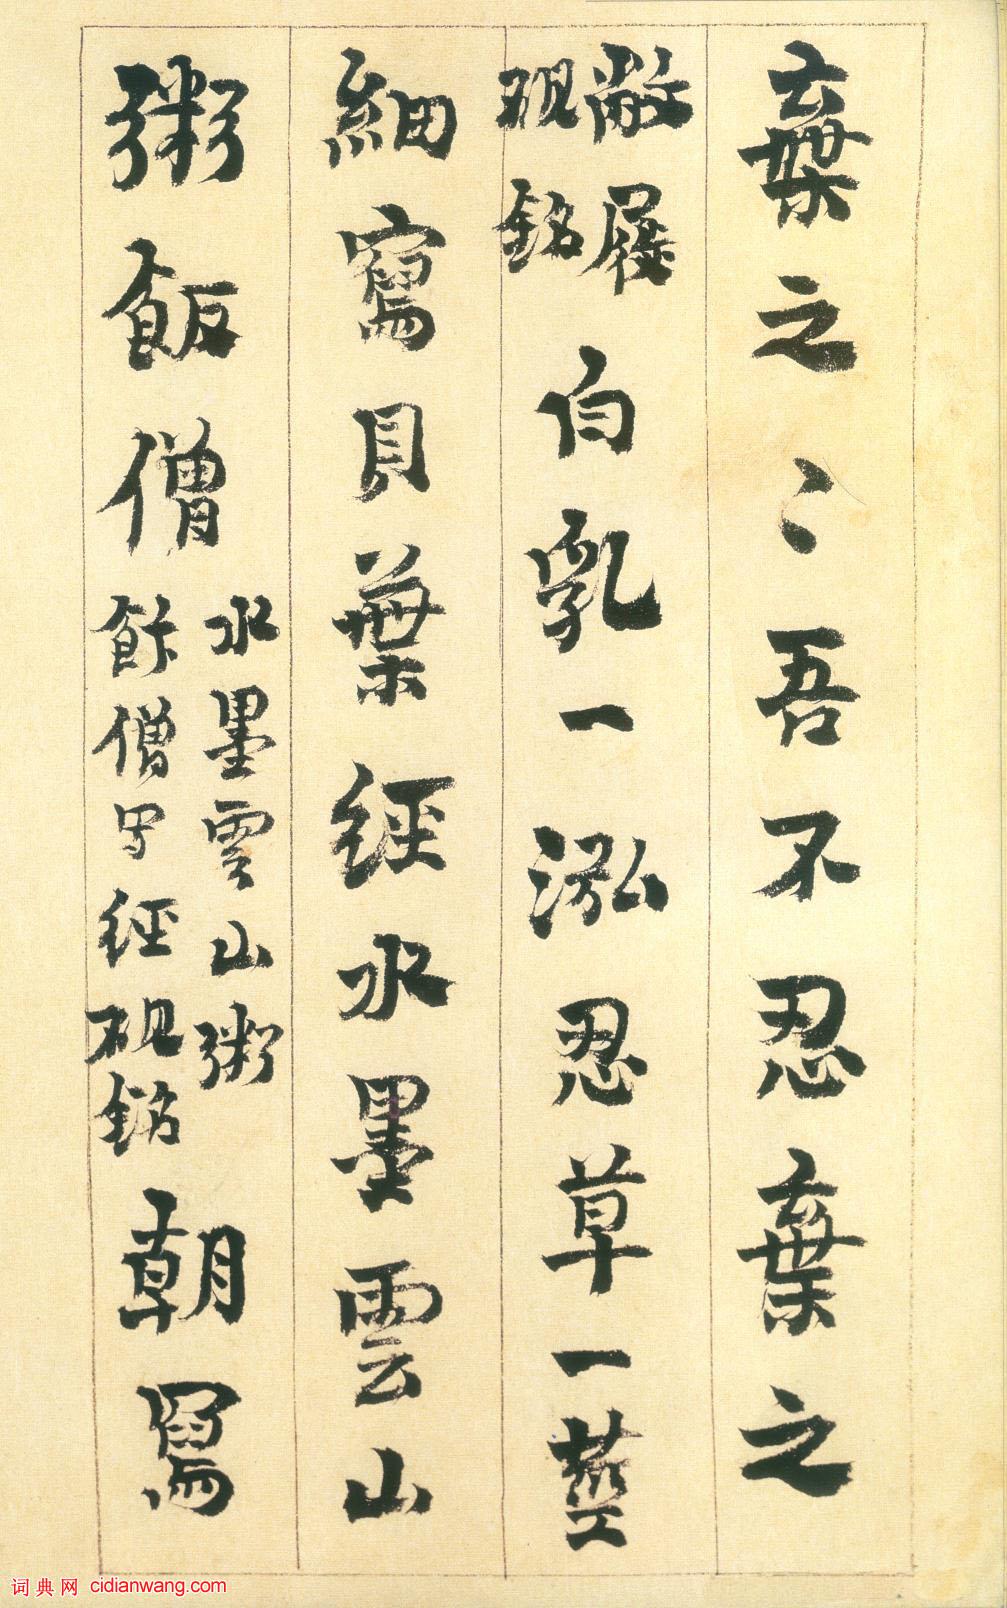 棄之〻吾不忍棄之
敝履
硯銘
白乳一泓忍草一莖
細寫貝葉經水墨雲山
粥飯僧
水墨雲山粥
飯僧写經硯銘
朝寫
词典网 cidianwang.com